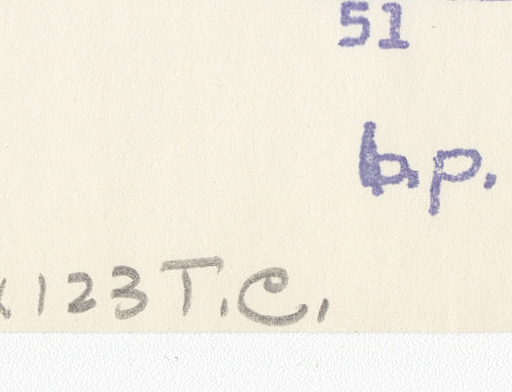 51
b.p.
123 T.C.